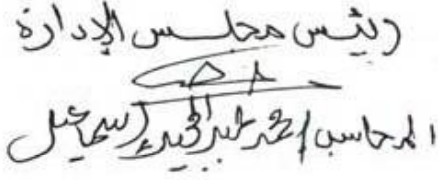 رئيس مجلس الإدارة
المحاسب / محمد عبد الحميد إسماعيل